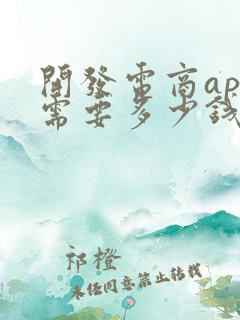 開發電商ap
需要多少錢
祁橙
未經同意禁止轉載